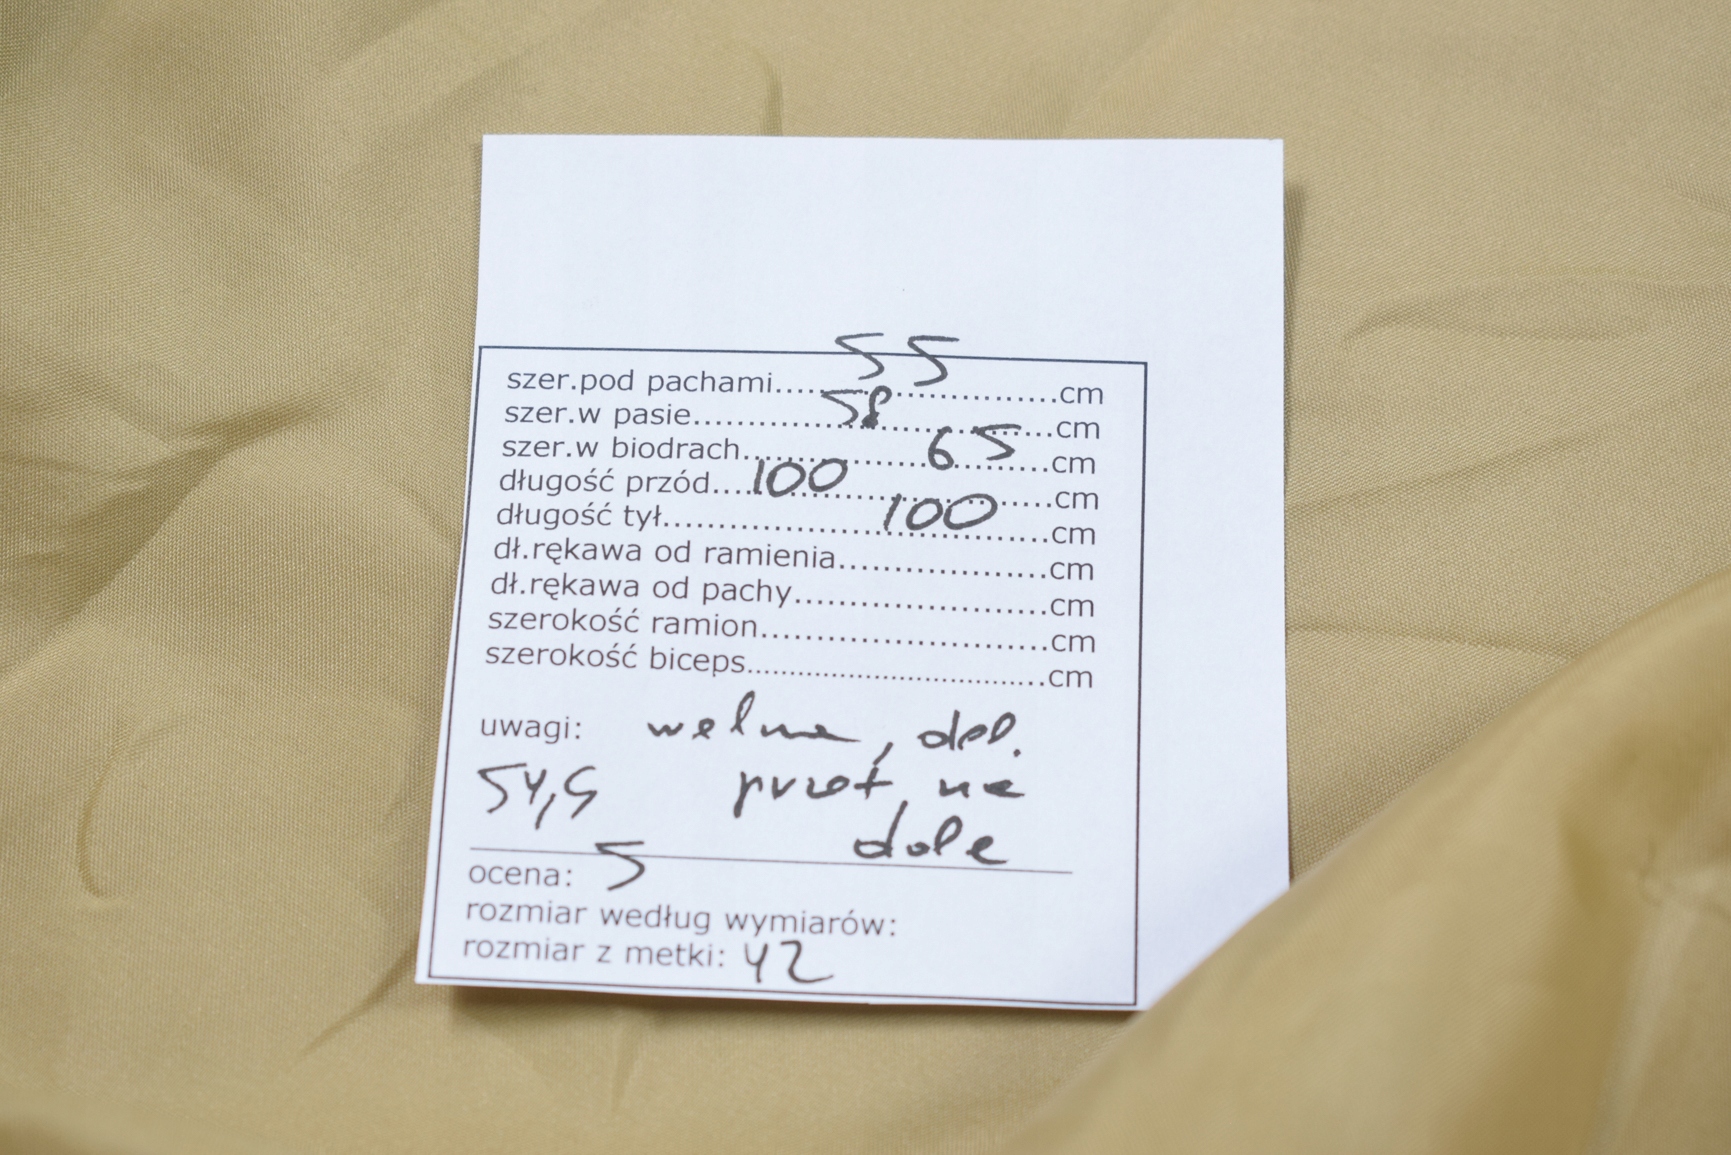 szer.pod pachami.....55.....cm
szer.w pasie.....58.....cm
szer.w biodrach.....65.....cm
długość przód.....100.....cm
długość tył.....100.....cm
dł.rękawa od ramienia.....cm
dł.rękawa od pachy.....cm
szerokość ramion.....cm
szerokość biceps.....cm
uwagi: wełna,
54,5 na
dole
ocena: 5
rozmiar według wymiarów:
rozmiar z metki: 42